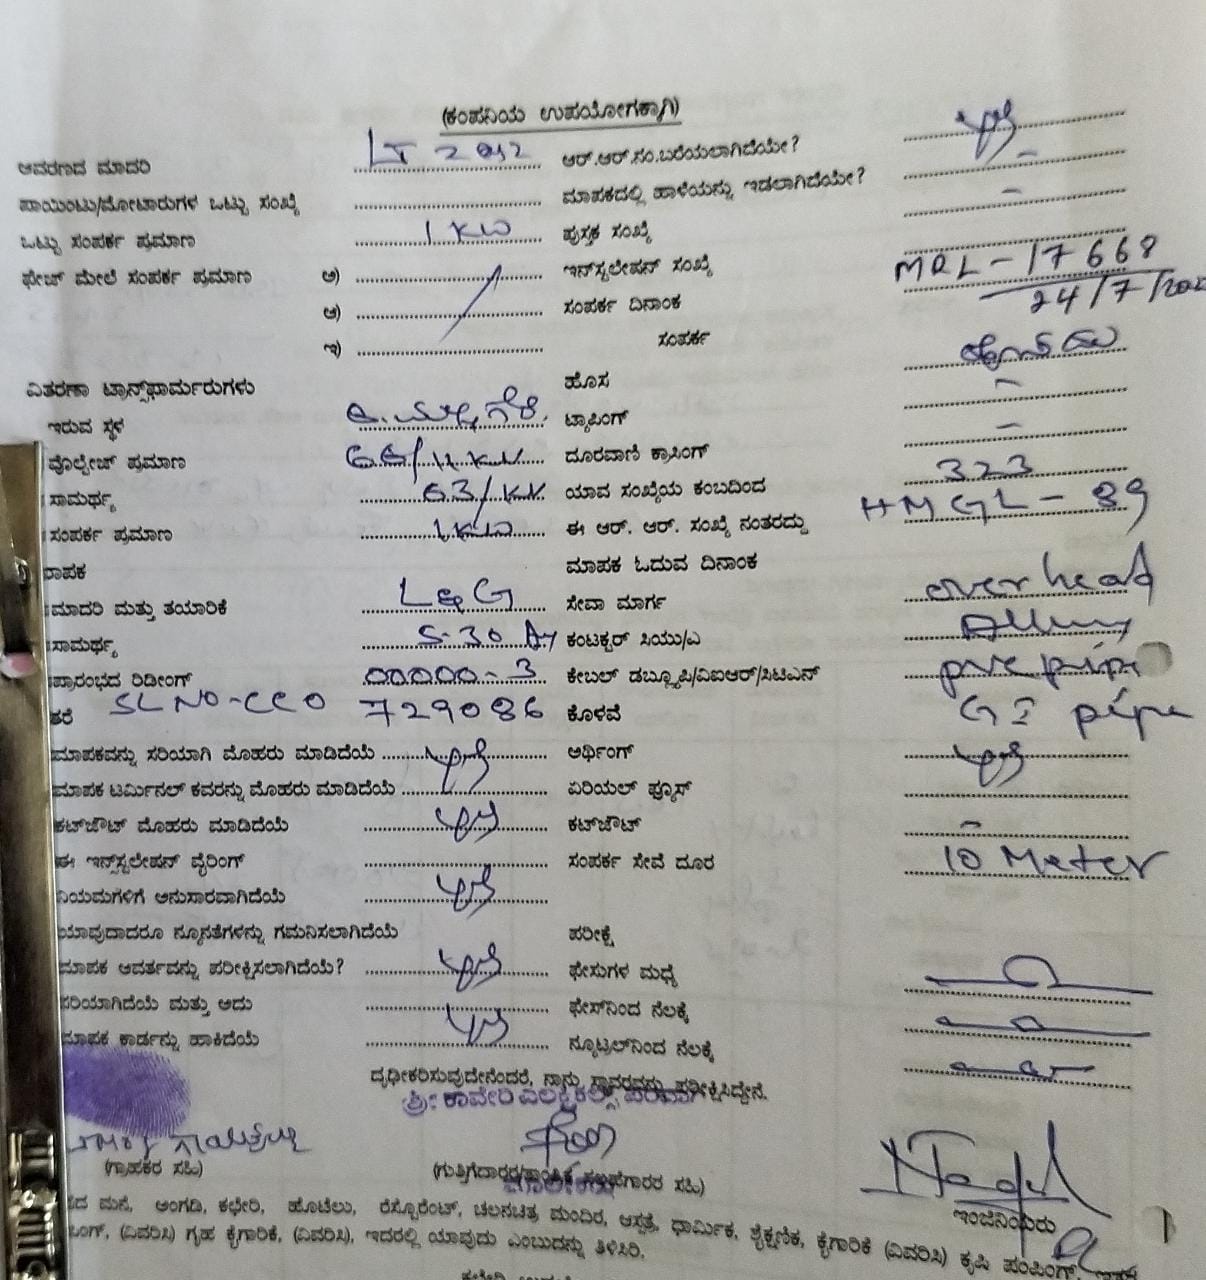 (ಕಂಪನಿಯ ಉಪಯೋಗಕ್ಕಾಗಿ)
ಆವರಣದ ಮಾದರಿ LT 2 ಆರ್.ಆರ್.ಸಂ.ಬರೆಯಲಾಗಿದೆಯೇ?
ಪಾಯಿಂಟು/ಮೋಟಾರುಗಳ ಒಟ್ಟು ಸಂಖ್ಯೆ ಮಾಪಕದಲ್ಲಿ ಹಾಳೆಯನ್ನು ಇಡಲಾಗಿದೆಯೇ? -
ಒಟ್ಟು ಸಂಪರ್ಕ ಪ್ರಮಾಣ 1 KW ಪುಸ್ತಕ ಸಂಖ್ಯೆ -
ಫೇಜ್ ಮೇಲೆ ಸಂಪರ್ಕ ಪ್ರಮಾಣ ಅ) ಇನ್‌ಸ್ಟಲೇಷನ್ ಸಂಖ್ಯೆ MRL-17668
ಆ) ಸಂಪರ್ಕ ದಿನಾಂಕ 24/7/202
ಇ) ಸಂಪರ್ಕ
ವಿತರಣಾ ಟ್ರಾನ್ಸ್‌ಫಾರ್ಮರುಗಳು ಹೊಸ
ಇರುವ ಸ್ಥಳ ಟ್ಯಾಪಿಂಗ್ -
ವೊಲ್ಟೇಜ್ ಪ್ರಮಾಣ 66/11 KV ದೂರವಾಣಿ ಕ್ರಾಸಿಂಗ್ -
ಸಾಮರ್ಥ್ಯ 63/KV ಯಾವ ಸಂಖ್ಯೆಯ ಕಂಬದಿಂದ 323
ಸಂಪರ್ಕ ಪ್ರಮಾಣ 1KW ಈ ಆರ್. ಆರ್. ಸಂಖ್ಯೆ ನಂತರದ್ದು HMGL-89
ಮಾಪಕ ಮಾಪಕ ಓದುವ ದಿನಾಂಕ
ಮಾದರಿ ಮತ್ತು ತಯಾರಿಕೆ L&G ಸೇವಾ ಮಾರ್ಗ over head
ಸಾಮರ್ಥ್ಯ 5-30 A ಕಂಟಕ್ಟರ್ ಸಿಯು/ಎ
ಪ್ರಾರಂಭದ ರಿಡೀಂಗ್ 00000-3 ಕೇಬಲ್ ಡಬ್ಲ್ಯೂಪಿ/ವಿಐಆರ್/ಸಿಟಿಎಸ್ pvc pipe
ತರೆ SL NO-CCO 729086 ಕೊಳವೆ GI pipe
ಮಾಪಕವನ್ನು ಸರಿಯಾಗಿ ಮೊಹರು ಮಾಡಿದೆಯೆ ಅರ್ಥಿಂಗ್
ಮಾಪಕ ಟರ್ಮಿನಲ್ ಕವರನ್ನು ಮೊಹರು ಮಾಡಿದೆಯೆ ಏರಿಯಲ್ ಫ್ಯೂಸ್
ಕಟ್‌ಔಟ್ ಮೊಹರು ಮಾಡಿದೆಯೆ ಕಟ್‌ಔಟ್ -
ಈ ಇನ್‌ಸ್ಟಲೇಷನ್ ವೈರಿಂಗ್ ಸಂಪರ್ಕ ಸೇವೆ ದೂರ 10 Meter
ನಿಯಮಗಳಿಗೆ ಅನುಸಾರವಾಗಿದೆಯೆ
ಯಾವುದಾದರೂ ನ್ಯೂನತೆಗಳನ್ನು ಗಮನಿಸಲಾಗಿದೆಯೆ ಪರೀಕ್ಷೆ
ಮಾಪಕ ಆವರ್ತವನ್ನು ಪರೀಕ್ಷಿಸಲಾಗಿದೆಯೆ? ಫೇಸುಗಳ ಮಧ್ಯೆ
ಸರಿಯಾಗಿದೆಯೆ ಮತ್ತು ಅದು ಫೇಸ್‌ನಿಂದ ನೆಲಕ್ಕೆ
ಮಾಪಕ ಕಾರ್ಡನ್ನು ಹಾಕಿದೆಯೆ ನ್ಯೂಟ್ರಲ್‌ನಿಂದ ನೆಲಕ್ಕೆ
ದೃಢೀಕರಿಸುವುದೇನೆಂದರೆ, ನಾನು ಸ್ಥಾವರವನ್ನು ಪರೀಕ್ಷಿಸಿದ್ದೇನೆ.
ಶ್ರೀ ಕಾವೇರಿ ಎಲೆಕ್ಟ್ರಿಕಲ್ಸ್
(ಗ್ರಾಹಕರ ಸಹಿ) (ಗುತ್ತಿಗೆದಾರರ/ತಾಂತ್ರಿಕ ಸಲಹೆಗಾರರ ಸಹಿ)
ಇಂಜಿನಿಯರು
ಮನೆ, ಅಂಗಡಿ, ಕಛೇರಿ, ಹೊಟೆಲು, ರೆಸ್ಟೊರೆಂಟ್, ಚಲನಚಿತ್ರ ಮಂದಿರ, ಆಸ್ಪತ್ರೆ, ಧಾರ್ಮಿಕ, ಶೈಕ್ಷಣಿಕ, ಕೈಗಾರಿಕೆ (ವಿವರಿಸಿ) ಕೃಷಿ ಪಂಪಿಂಗ್,
(ವಿವರಿಸಿ) ಗೃಹ ಕೈಗಾರಿಕೆ, (ವಿವರಿಸಿ), ಇದರಲ್ಲಿ ಯಾವುದು ಎಂಬುದನ್ನು ತಿಳಿಸಿರಿ,